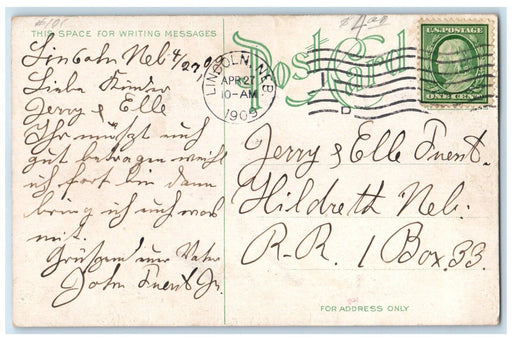 THIS SPACE FOR WRITING MESSAGES
Post Card
Lincoln Neb 4/27 09
Liebe Kinder
Jerry & Elle
Ihr müszt euch
gut betragen weihl
ich fort bin dann
bring ich euch was
mit.
Grüszend euer Vater
John Fuerst Jr.
LINCOLN, NEB.
APR 27
10-AM
1909
U.S. POSTAGE
ONE CENT
Jerry & Elle Fuerst.
Hildreth Neb.
R.R. 1 Box 33.
FOR ADDRESS ONLY